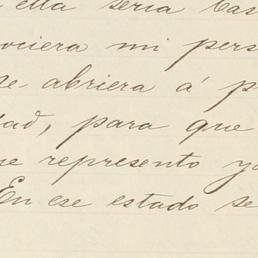 ella seria cas
ociera mi pers
se abriera á p
dad, para que
se represento ya
En ese estado se